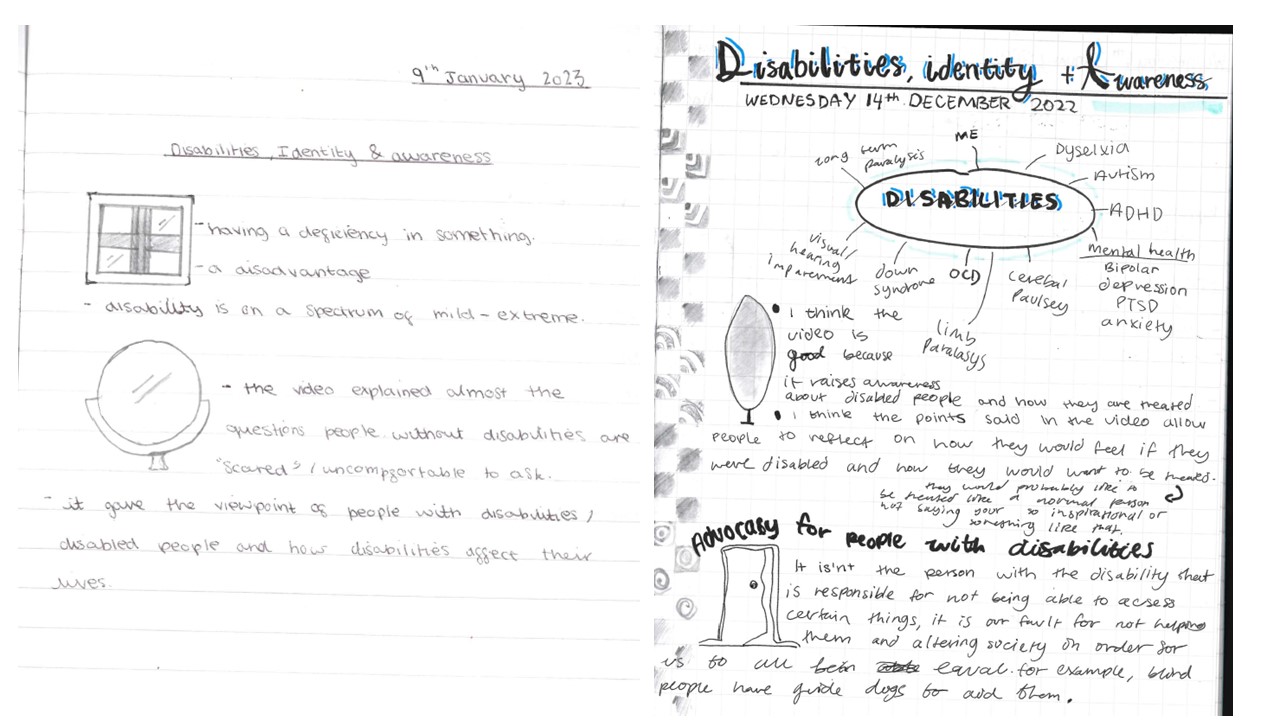 9th January 2023
Disabilities, Identity & awareness
- having a deficiency in something.
- a disadvantage
- disability is on a spectrum of mild-extreme.
- the video explained almost the
questions people without disabilities are
"scared"/uncomfortable to ask.
- it gave the viewpoint of people with disabilities/
disabled people and how disabilities affect their
lives.
Disabilities, identity + Awareness
WEDNESDAY 14th DECEMBER 2022
ME
long term
paralysis
Dyselxia
Autism
DISABILITIES
ADHD
visual/
hearing
imparement
down
syndrome
OCD
cerebal
Paulsey
limb
Paralasys
mental health
Bipolar
depression
PTSD
anxiety
• i think the
video is
good because
it raises awareness
about disabled people and how they are treated
• i think the points said in the video allow
people to reflect on how they would feel if they
were disabled and how they would want to be treated.
they would probably like to
be treated like a normal person
not saying your so inspirational or
something like that.
Advocasy for people with disabilities
It is'nt the person with the disability that
is responsible for not being able to acsess
certain things, it is our fault for not helping
them and altering society in order for
us to all equal. for example, blind
people have guide dogs to aid them.